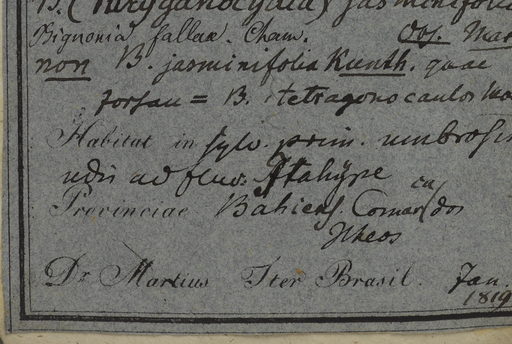 B. (Pterygancalycia) jasminifolia
Bignonia fallax. Cham. Obs. Mar
non B. jasminifolia Kunth. quae
forsan = B. tetragonocaulos
Habitat in sylv. prim. umbrosi
udis ad fluv. Itahÿpe
Provinciae Bahiens. Comarca dos
Ilheos
Dr Martius Iter Brasil. Jan.
1819